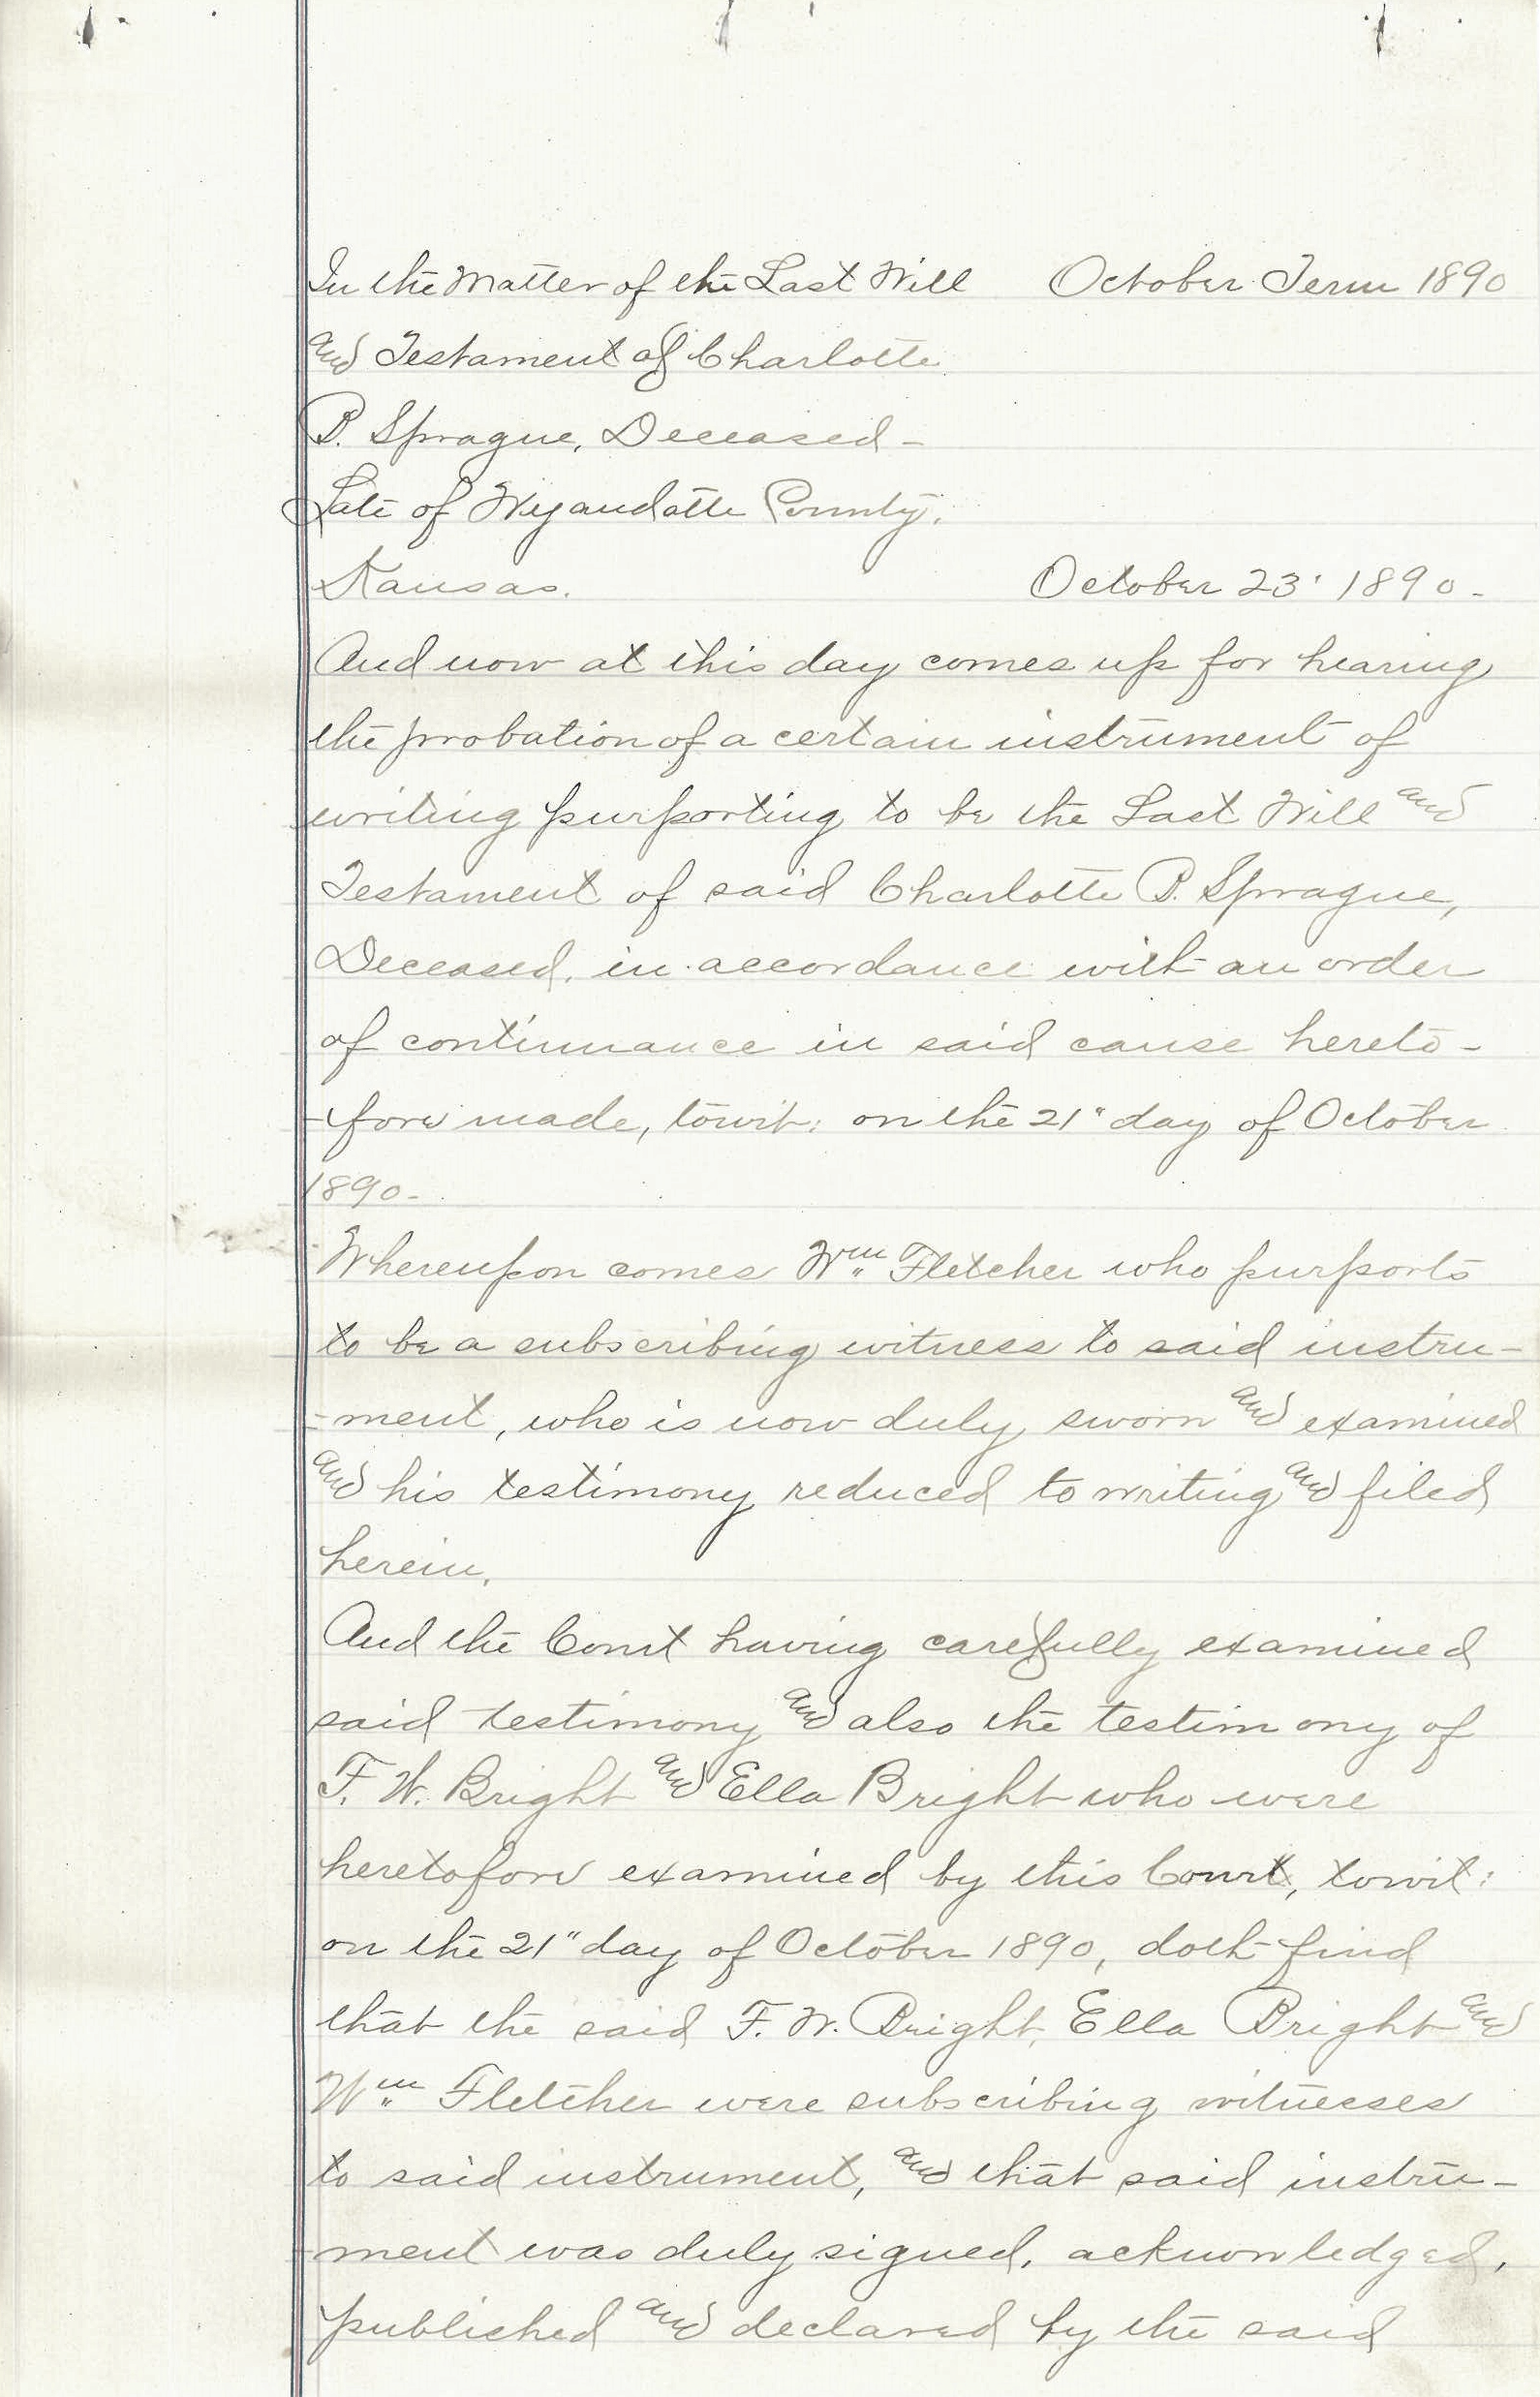 In the Matter of the Last Will October Term 1890
and Testament of Charlotte
B. Sprague, Deceased -
Late of Wyandotte County,
Kansas. October 23" 1890 -
And now at this day comes up for hearing
the probation of a certain instrument of
writing purporting to be the Last Will and
Testament of said Charlotte B. Sprague,
Deceased, in accordance with an order
of continuance in said cause hereto -
- fore made, towit: on the 21" day of October
1890 -
Whereupon comes Wm Fletcher who purports
to be a subscribing witness to said instru -
- ment, who is now duly sworn and examined
and his testimony reduced to writing and filed
herein.
And the Court having carefully examined
said testimony and also the testimony of
F. W. Bright and Ella Bright who were
heretofore examined by this Court, towit:
on the 21" day of October 1890, doth find
that the said F. W. Bright, Ella Bright and
Wm Fletcher were subscribing witnesses
to said instrument, and that said instru -
- ment was duly signed, acknowledged,
published and declared by the said